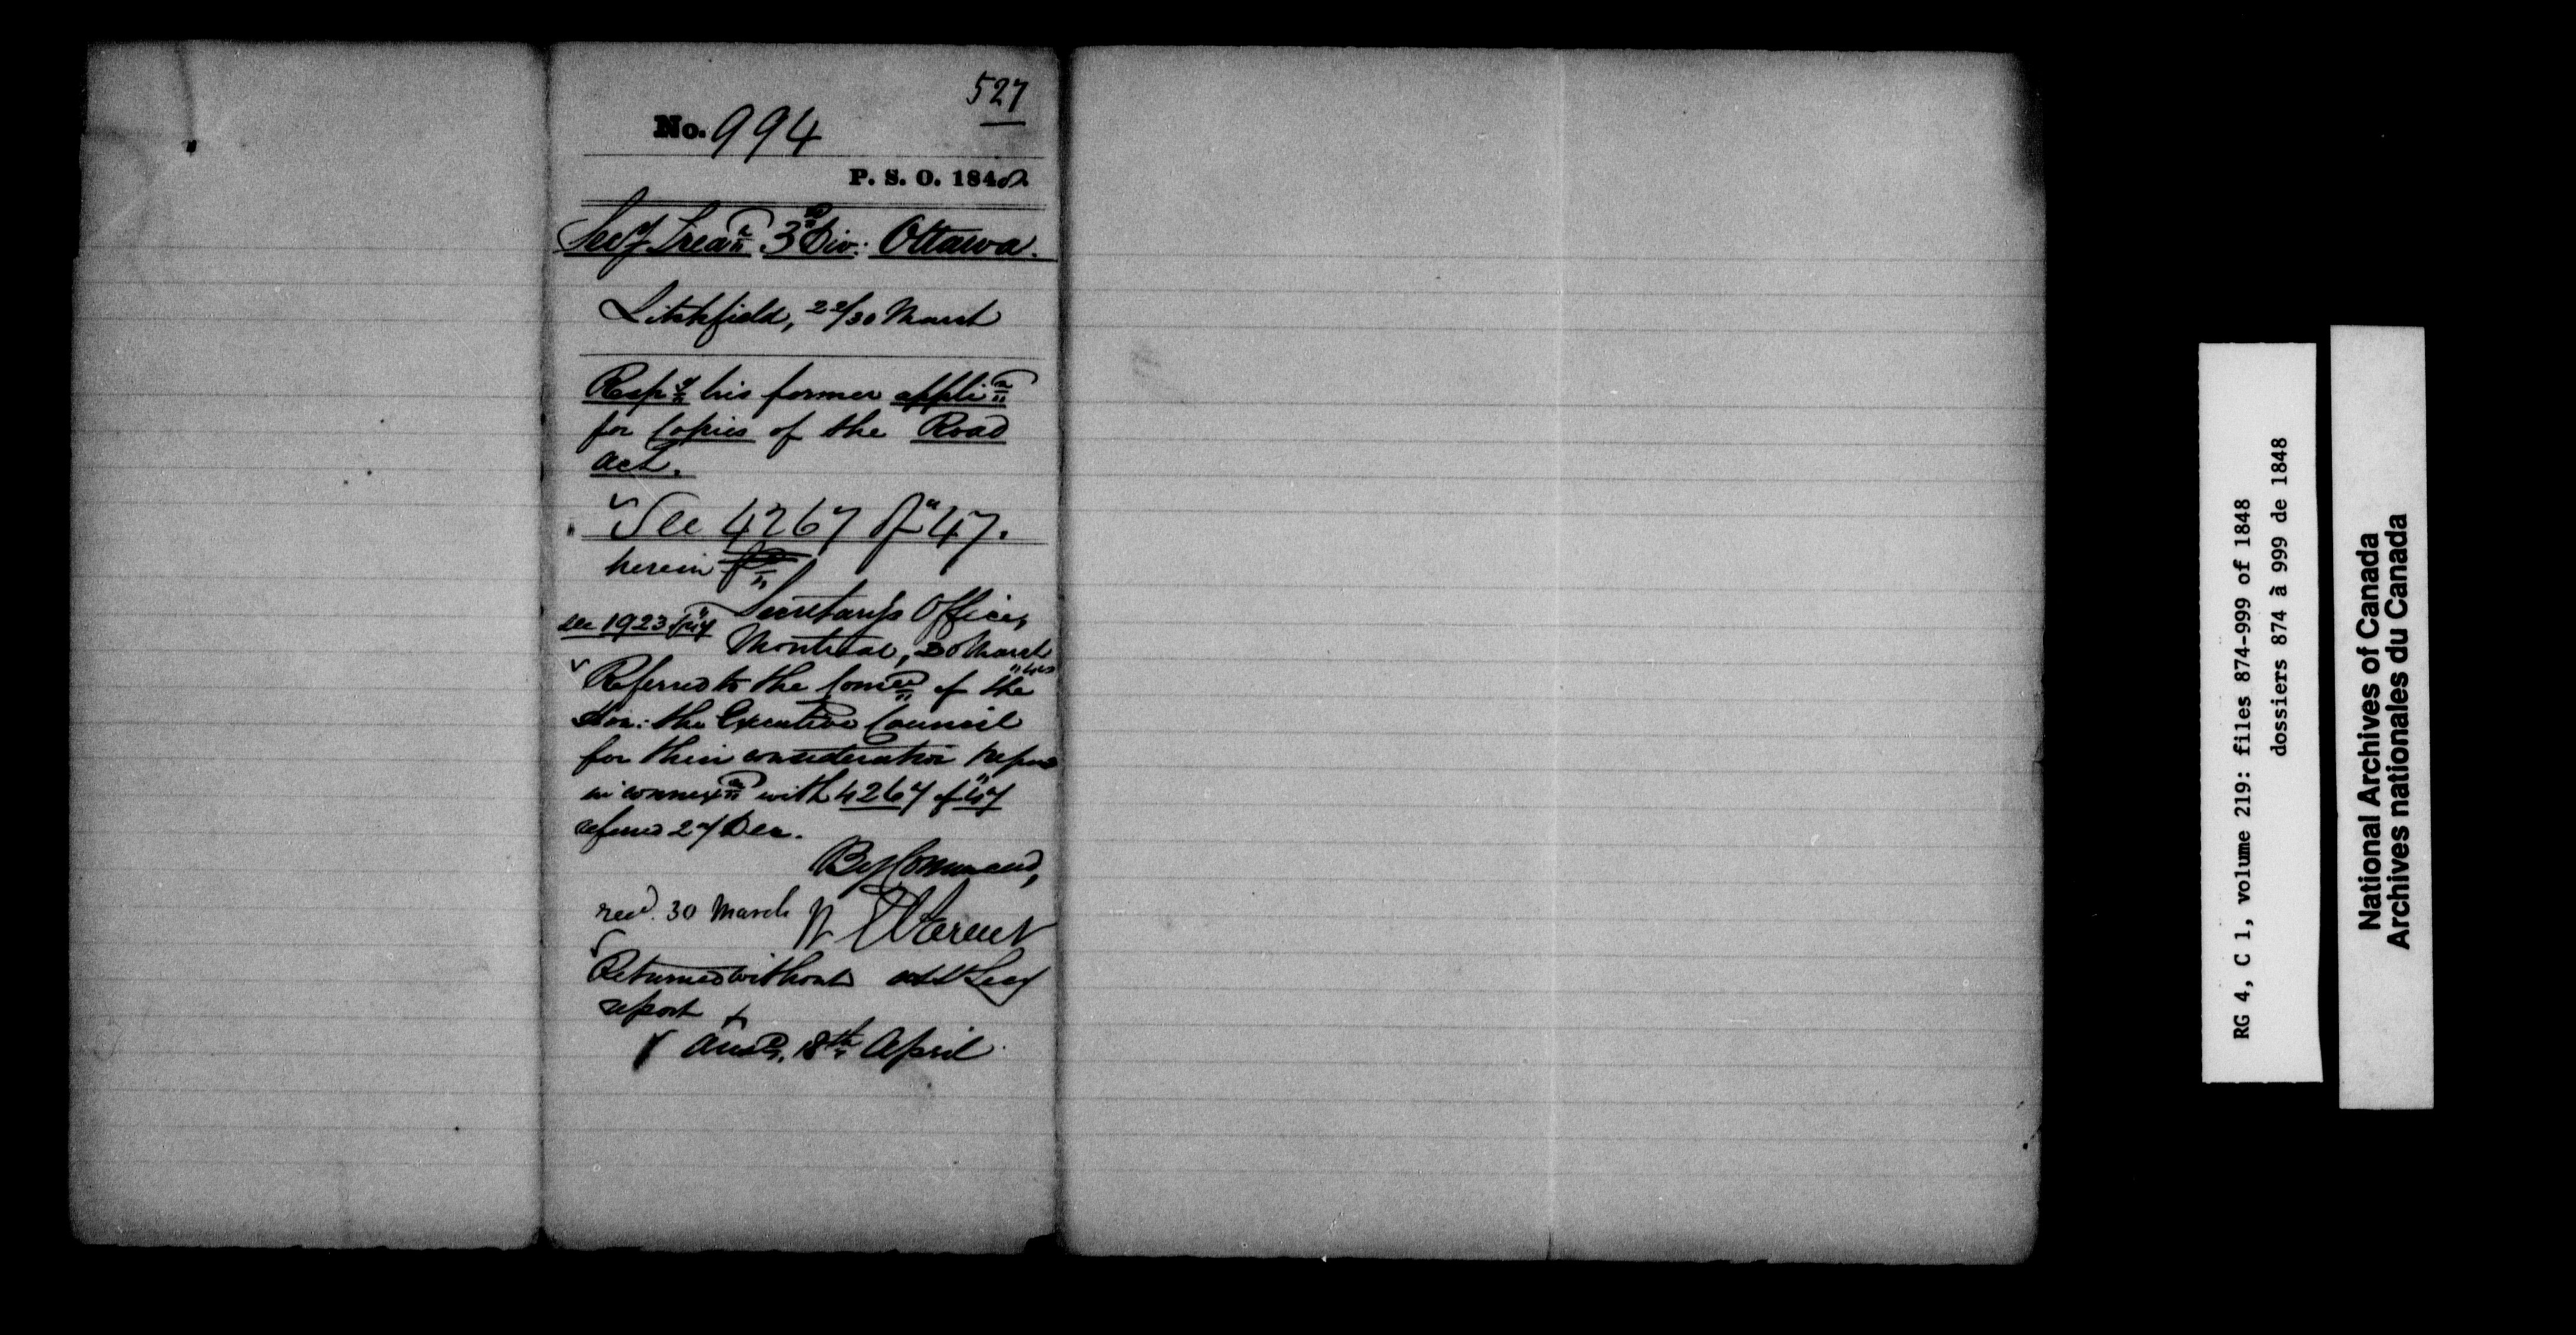 527
No. 994
P. S. O. 1848
Secy Treasr 3d Div: Ottawa.
Litchfield, 22/30 March
Respg his former applin
for Copies of the Road
Act.
See 4267 of "47.
herein
See 1923 of "47
Secretary's Office,
Montreal, 30 March
"48
Referred to the Comee of the
Hon: the Executive Council
for their consideration & report
in connexn with 4267 of "47
referred 27 Dec.
By Command,
recd. 30 March
E Parent
Returned without
report
Ansd, 18th April
RG 4, C 1, volume 219: files 874-999 of 1848
dossiers 874 à 999 de 1848
National Archives of Canada
Archives nationales du Canada